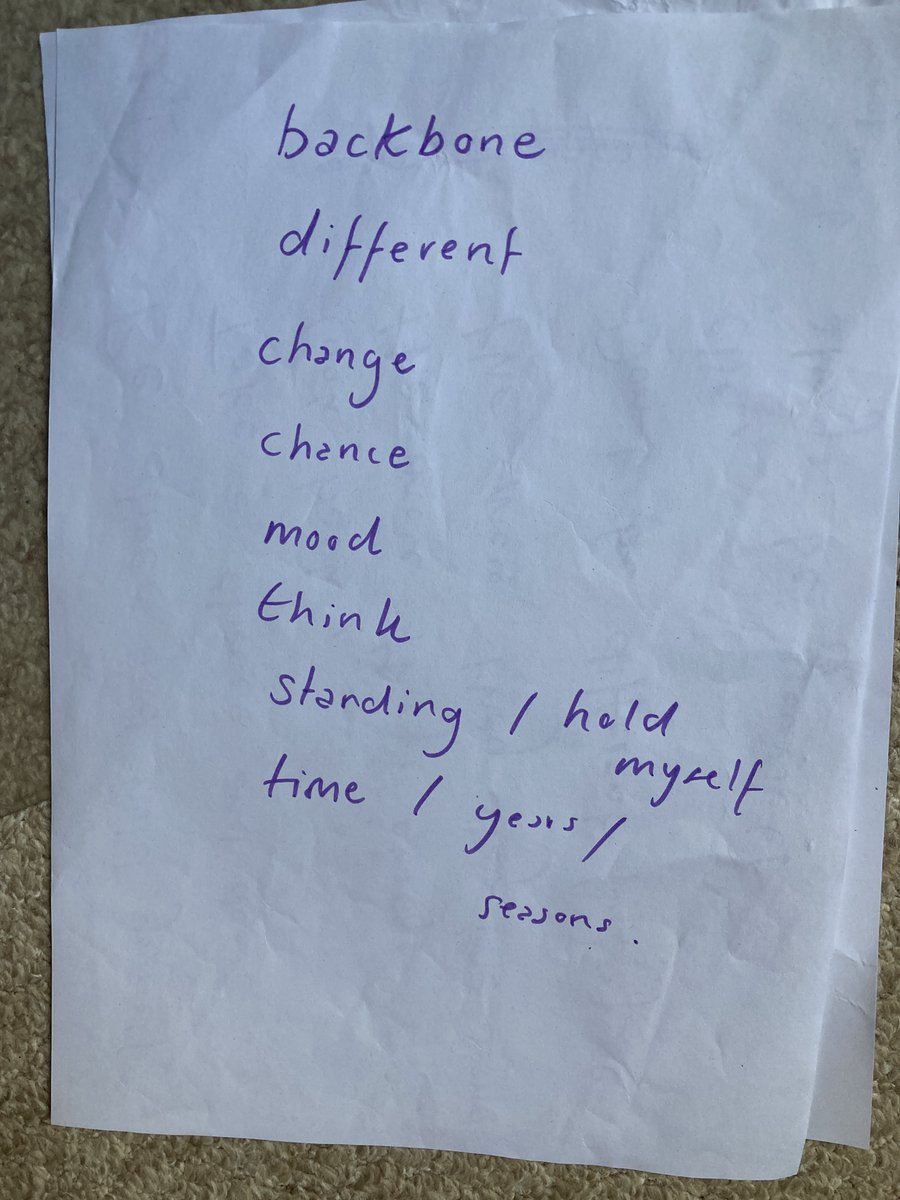 backbone
different
change
chance
mood
think
standing / hold
myself
time / years /
seasons.